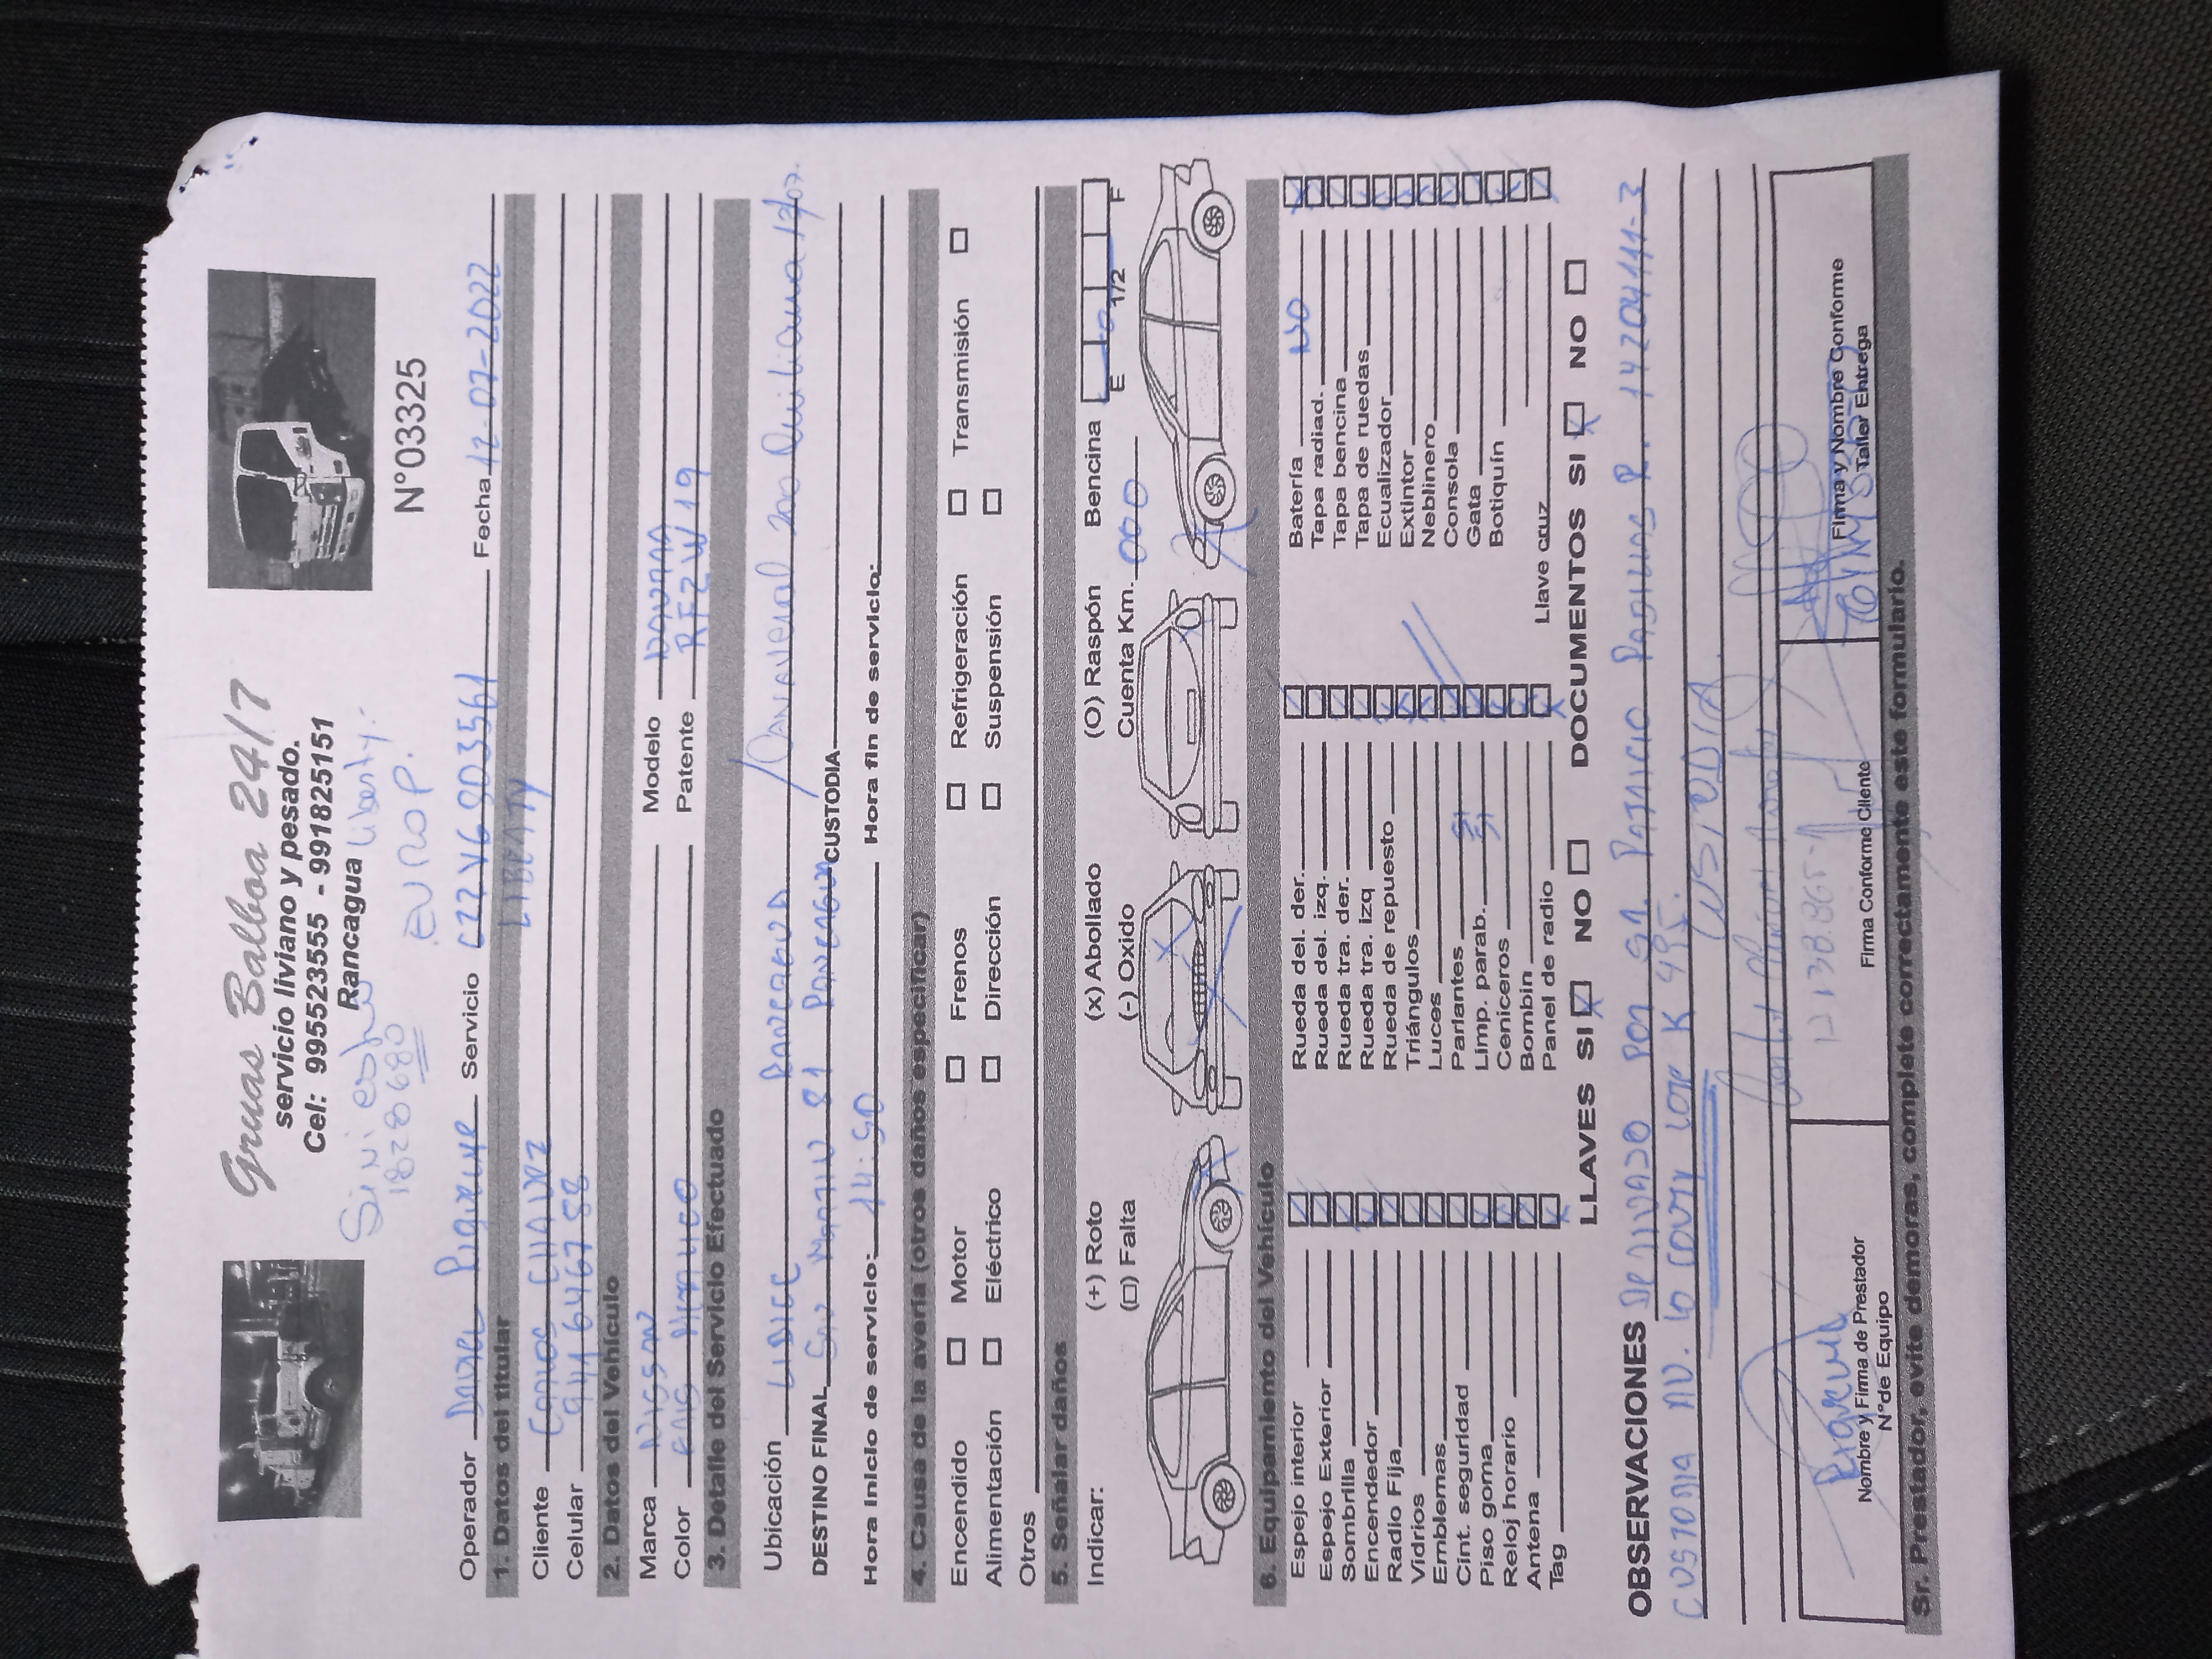 Gruas Balboa 24/7
servicio liviano y pesado.
Cel: 995523555 - 991825151
Rancagua
Siniestro Liberty.-
1828680
EUROP.
N°03325
Operador Servicio C22V6903561 Fecha 12-07-2022
1. Datos del titular LIBERTY
Cliente Carlos
Celular 941646788
2. Datos del Vehículo
Marca Nissan Modelo NAVARA
Color Patente RFZW19
3. Detalle del Servicio Efectuado
Ubicación LIDICE RANCAGUA / 13/07.
DESTINO FINAL San Martin 81 Rancagua CUSTODIA
Hora Inicio de servicio: 14:50 Hora fin de servicio:
4. Causa de la avería (otros daños especificar)
Encendido Motor Frenos Refrigeración Transmisión
Alimentación Eléctrico Dirección Suspensión
Otros
5. Señalar daños
Indicar: (+) Roto (x) Abollado (O) Raspón Bencina E 1/2 F
(□) Falta (-) Oxido Cuenta Km. 000
6. Equipamiento del Vehículo
Espejo interior Rueda del. der. Batería NO
Espejo Exterior Rueda del. izq. Tapa radiad.
Sombrilla Rueda tra. der. Tapa bencina
Encendedor Rueda tra. izq Tapa de ruedas
Radio Fija Rueda de repuesto Ecualizador
Vidrios Triángulos Extintor
Emblemas Luces Neblinero
Cint. seguridad Parlantes SI Consola
Piso goma Limp. parab. SI Gata
Reloj horario Ceniceros Botiquín
Antena Bombin
Tag Panel de radio Llave cruz
LLAVES SI NO DOCUMENTOS SI NO
OBSERVACIONES Derivado por Sr. Patricio R. 14204111-3
CUSTODIA AV. LOTE K 495.
CUSTODIA
12138865-1
Nombre y Firma de Prestador
N°de Equipo
Firma Conforme Cliente
Firma y Nombre Conforme
Taller Entrega
Sr. Prestador, evite demoras, complete correctamente este formulario.